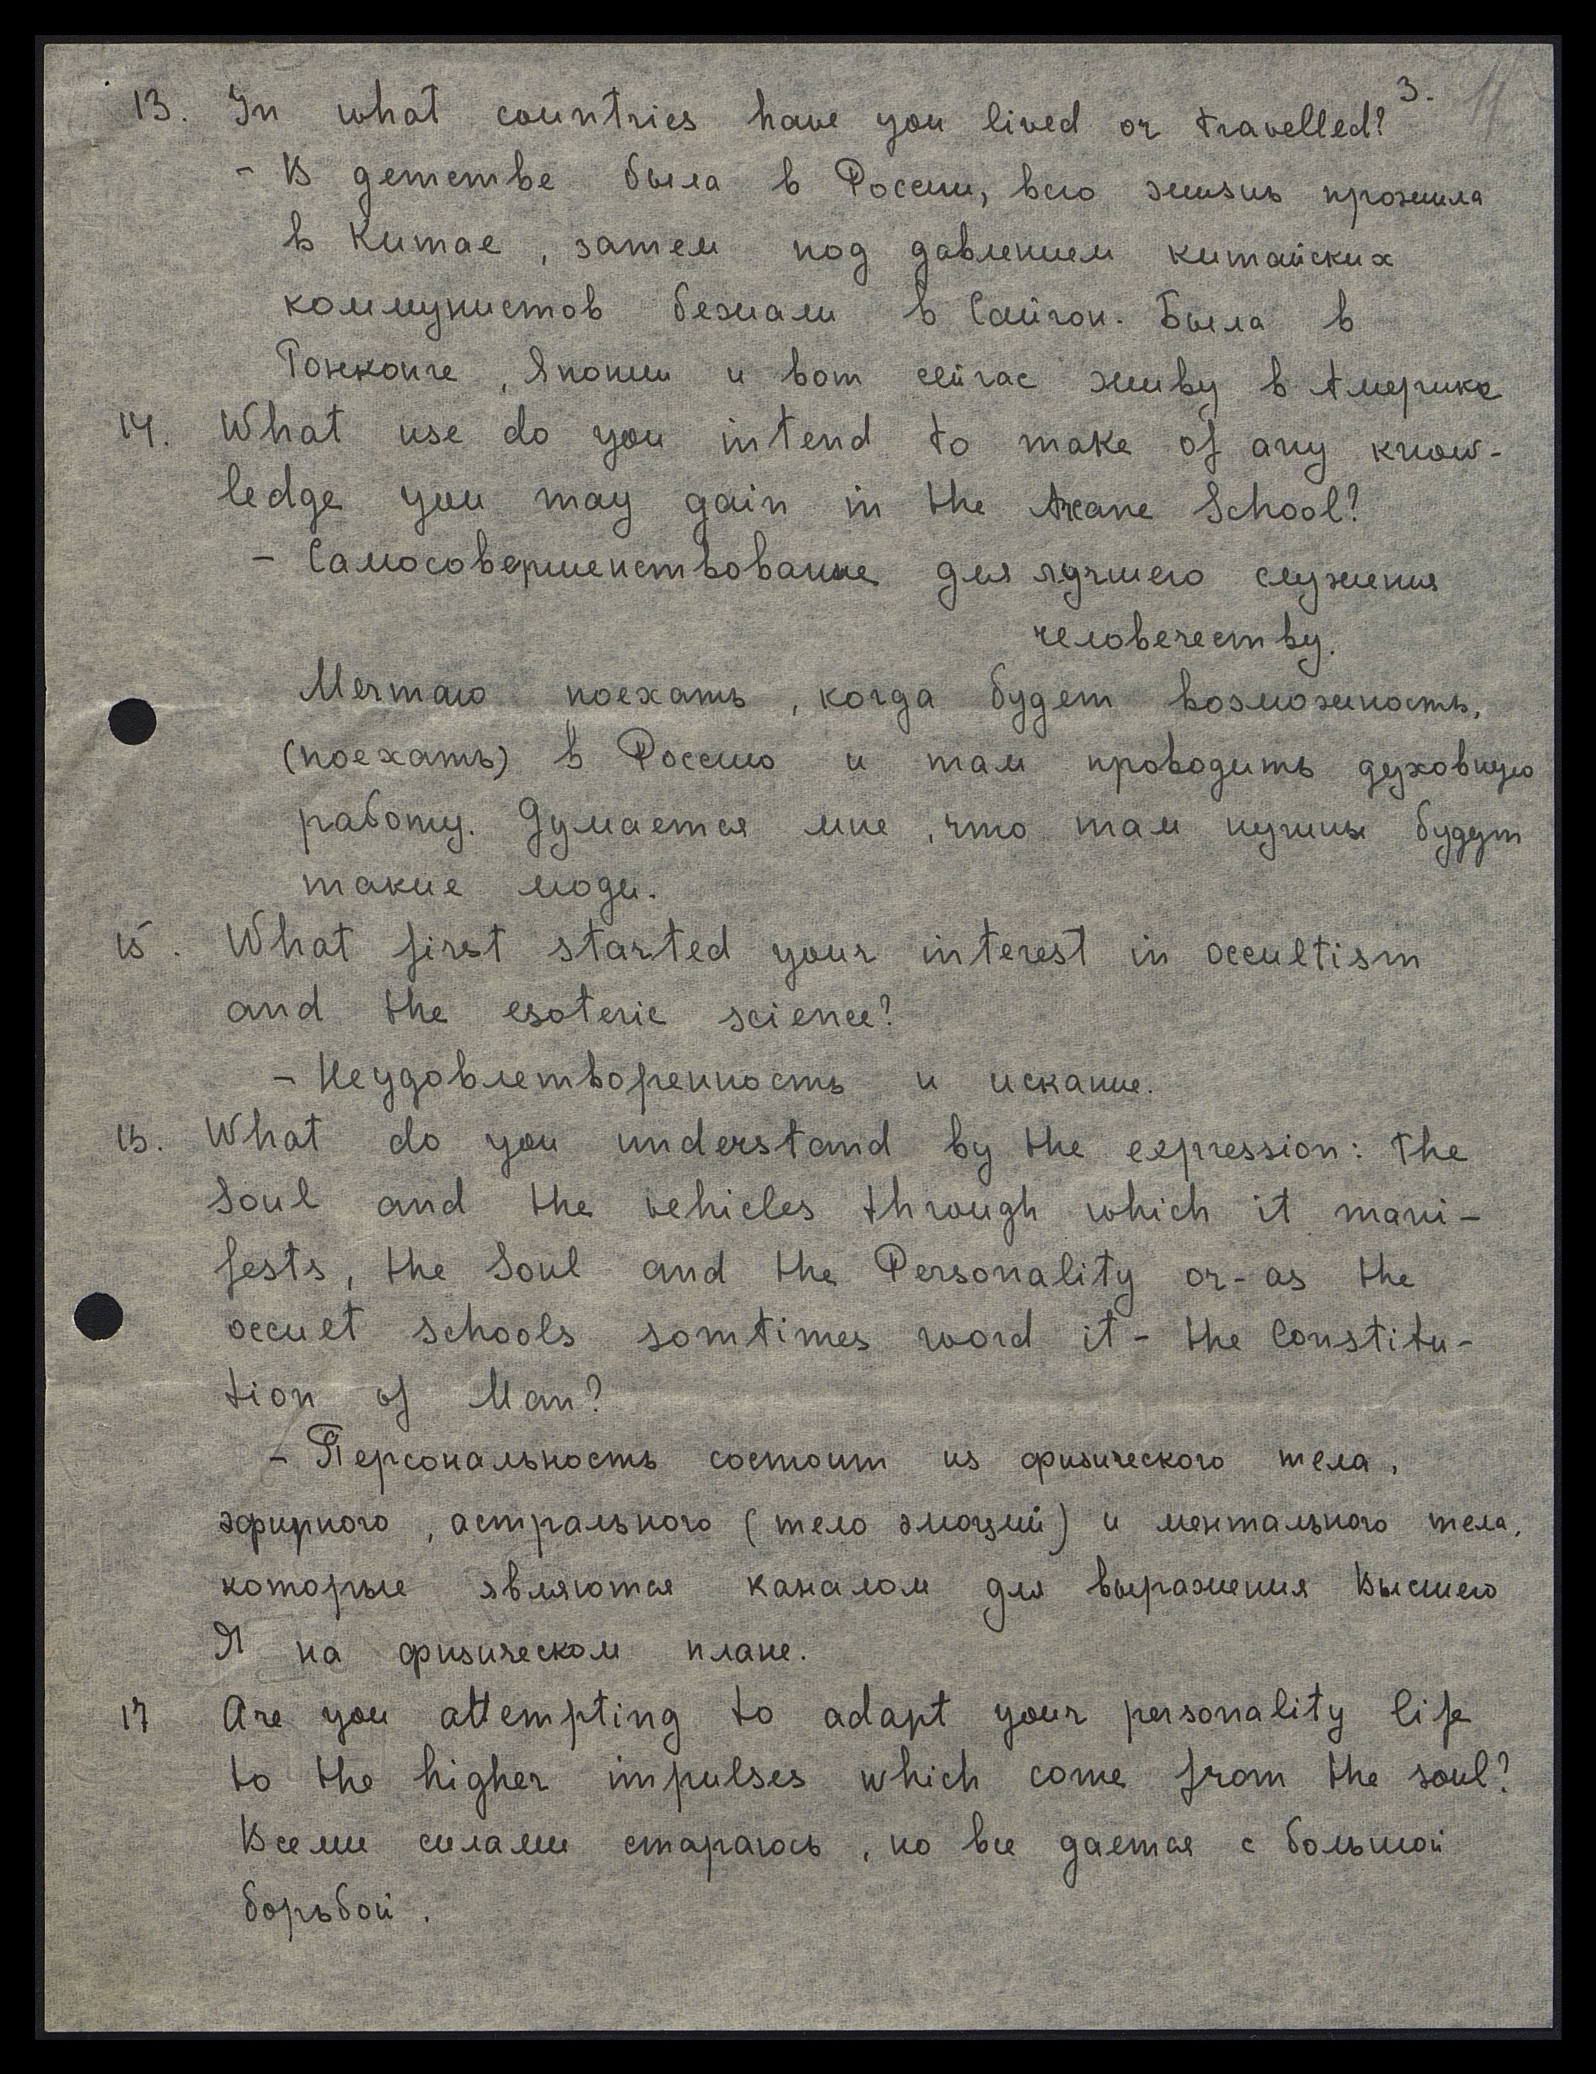 3.
13. In what countries have you lived or travelled?
- В детстве была в России, всю жизнь прожила
в Китае, затем под давлением китайских
коммунистов бежали в Сайгон. Была в
Гонконге, Японии и вот сейчас живу в Америке
14. What use do you intend to make of any know-
ledge you may gain in the Arcane School?
- Самосовершенствование для лучшего служения
человечеству.
Мечтаю поехать, когда будет возможность,
(поехать) в Россию и там проводить духовную
работу. Думается мне, что там нужны будут
такие люди.
15. What first started your interest in occultism
and the esoteric science?
- Неудовлетворенность и искание.
15. What do you understand by the expression: The
Soul and the vehicles through which it mani-
fests, the Soul and the Personality or - as the
occult schools somtimes word it - the Constitu-
tion of Man?
- Персональность состоит из физического тела,
эфирного, астрального (тело эмоций) и ментального тела,
которые являются каналом для выражения Высшего
Я на физическом плане.
17 Are you attempting to adapt your personality life
to the higher impulses which come from the soul?
Всеми силами стараюсь, но все дается с большой
борьбой.